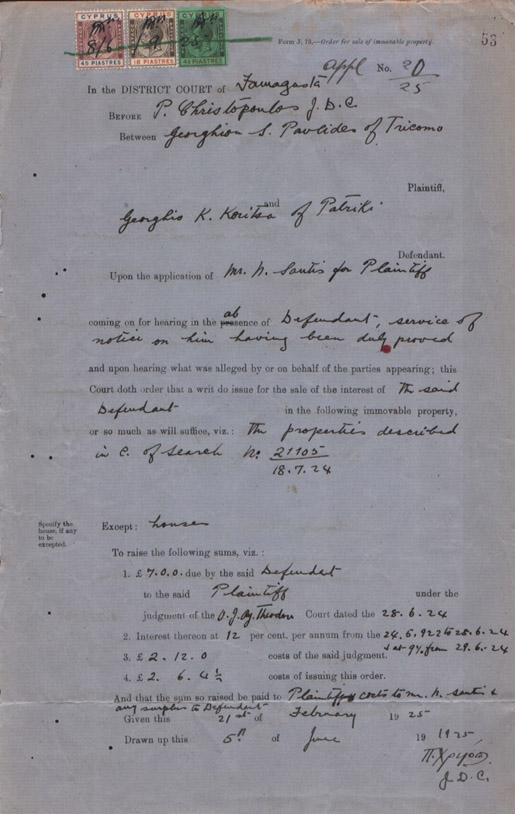 CYPRUS CYPRUS CYPRUS
45 PIASTRES 18 PIASTRES 4½ PIASTRES
Form J, 75.—Order for sale of immovable property.
53
appl No. 20/25
In the DISTRICT COURT of Famagusta
BEFORE P. Christopoulos J.D.C.
Between Georghios S. Pavlides of Tricomo
Plaintiff,
and
Georghio K. Koritsa of Patriki
Defendant.
Upon the application of Mr. N. Santis for Plaintiff
coming on for hearing in the absence of Defendant, service of
notice on him having been duly proved
and upon hearing what was alleged by or on behalf of the parties appearing; this
Court doth order that a writ do issue for the sale of the interest of the said
Defendant in the following immovable property,
or so much as will suffice, viz.: The properties described
in C. of Search No. 21105
18.7.24
Specify the
house, if any
to be
excepted.
Except: houses
To raise the following sums, viz.:
1. £7.0.0. due by the said Defendant
to the said Plaintiff under the
judgment of the D.J. Ay. Theodoro Court dated the 28.6.24
2. Interest thereon at 12 per cent. per annum from the 24.6.922 to 28.6.24
& at 9% from 29.6.24
3. £2.12.0 costs of the said judgment.
4. £2. 6. 4½ costs of issuing this order.
And that the sum so raised be paid to Plaintiff, costs to Mr. N. Santis &
any surplus to Defendant
Given this 21st of February 1925
Drawn up this 5th of June 19 1925
J.D.C.